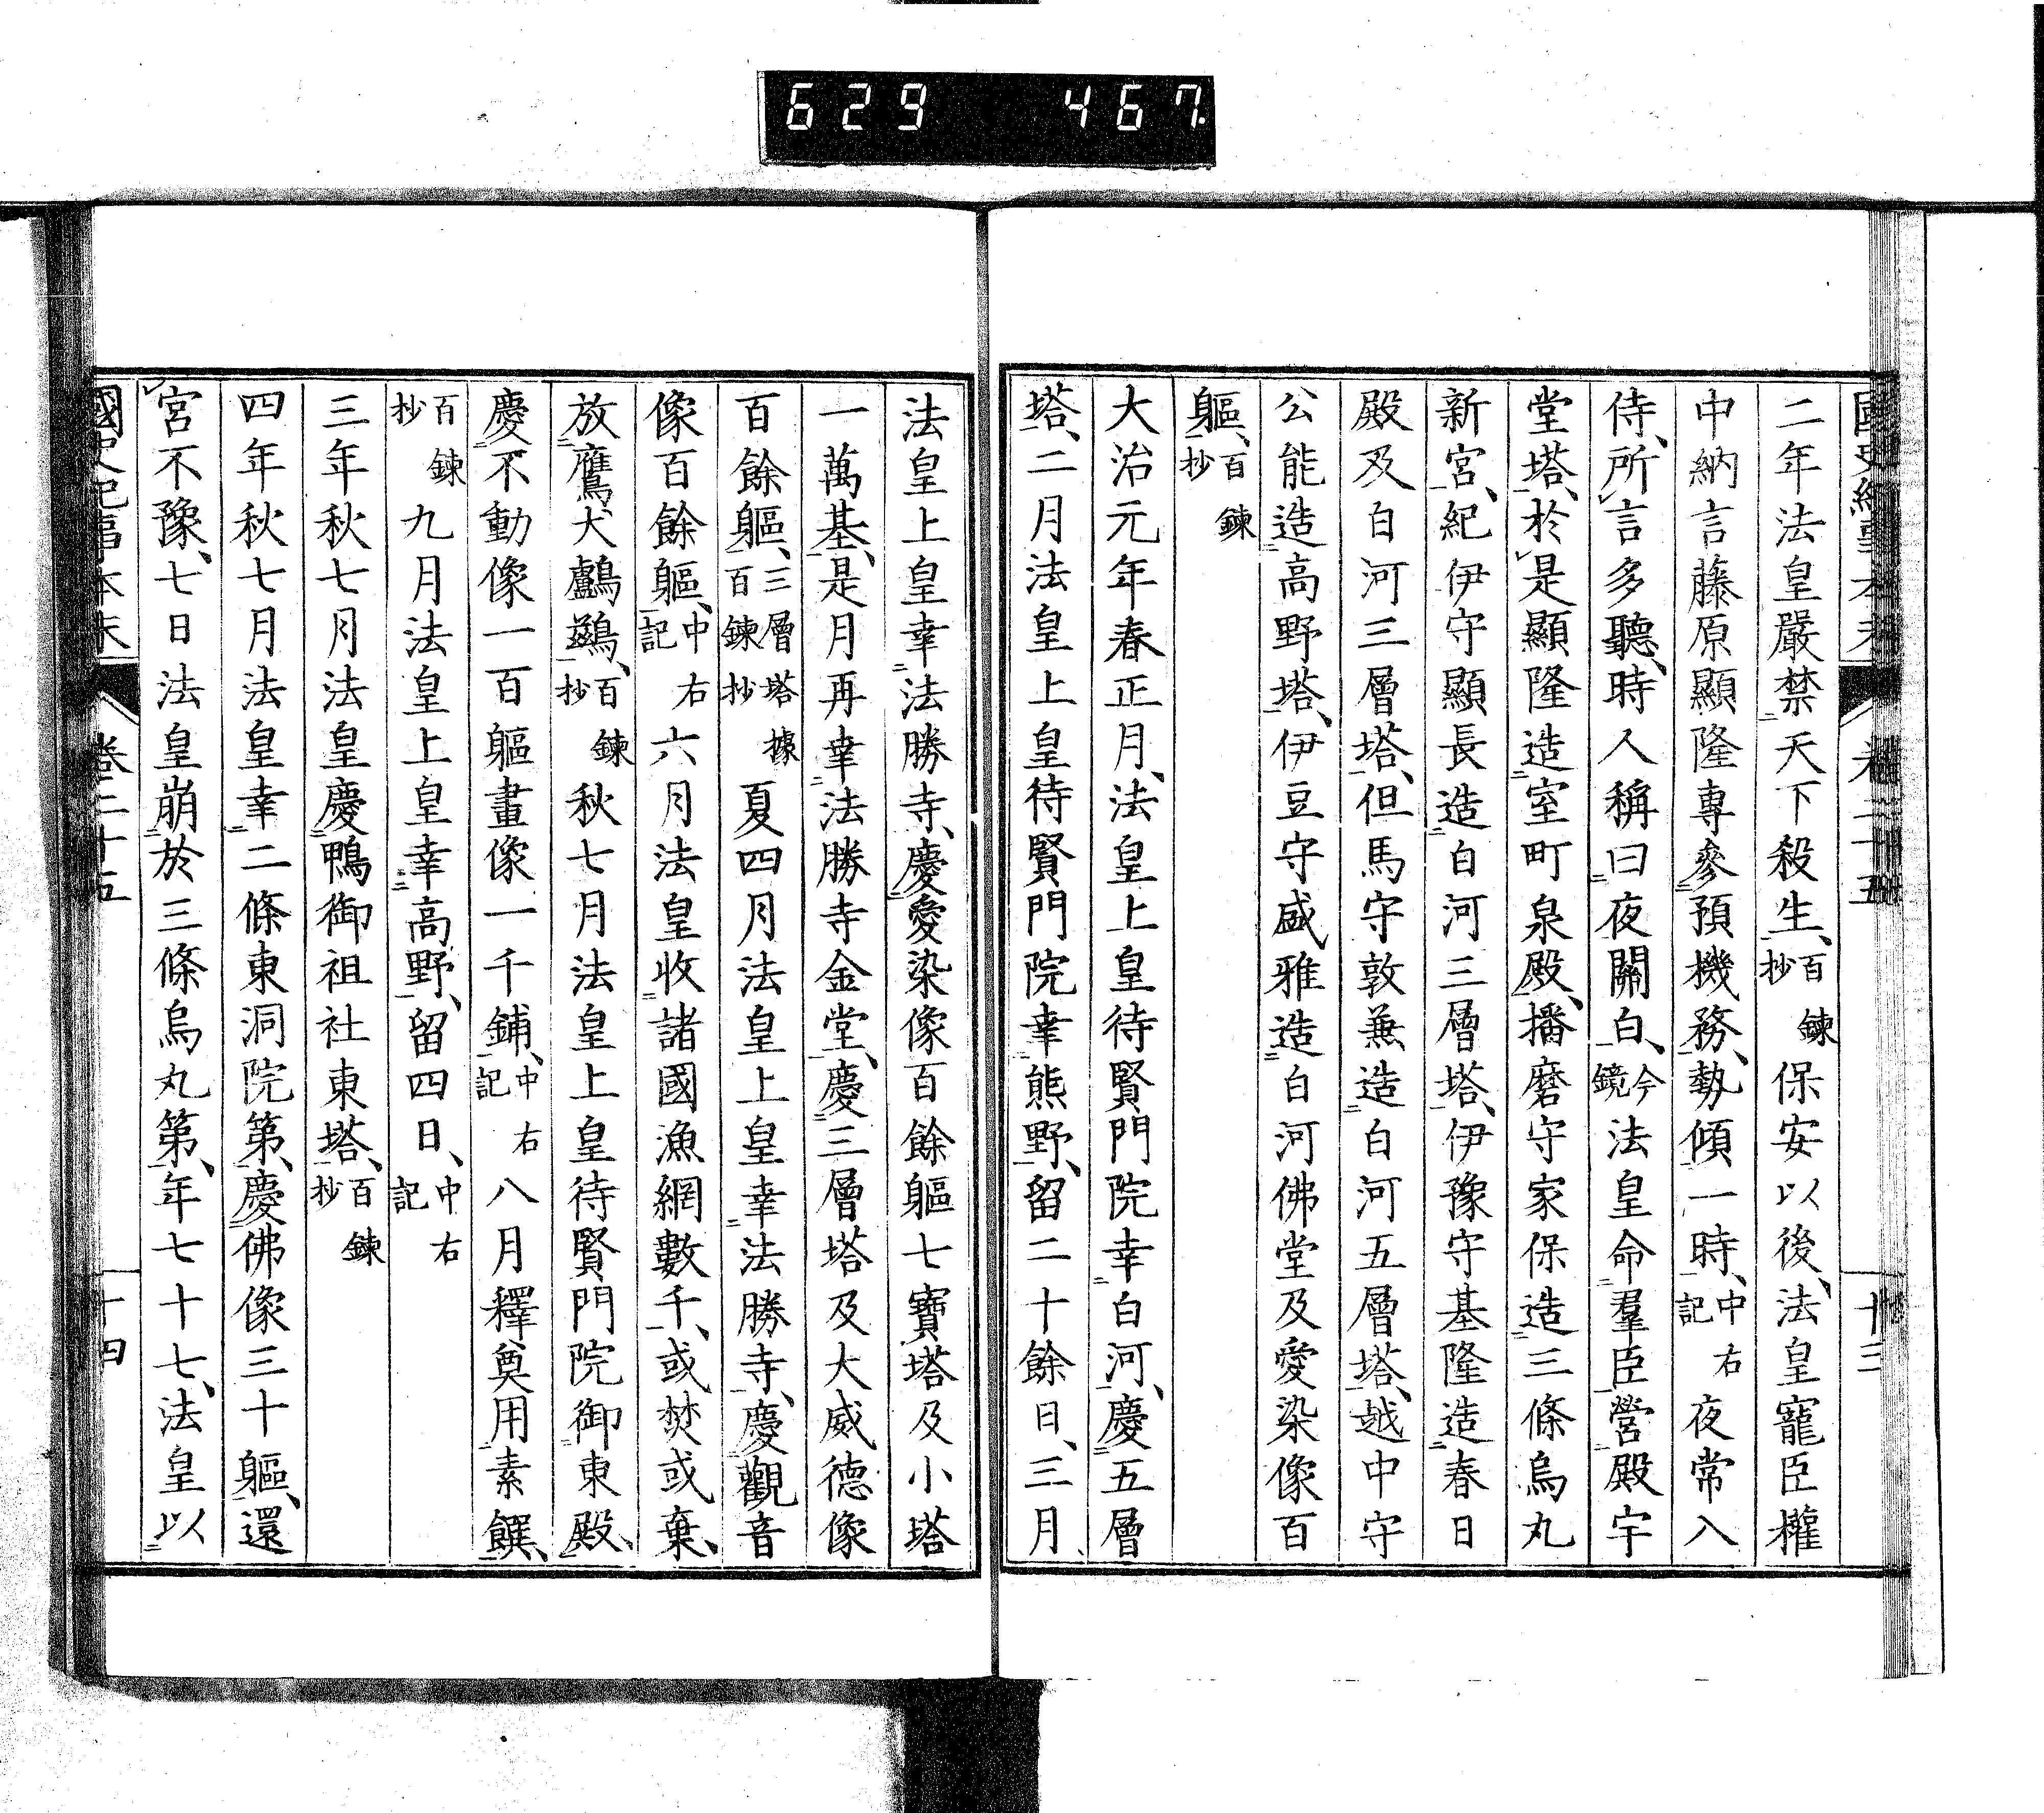 629 467
國史紀事本末 卷二十五 十三
二年法皇嚴禁天下殺生、百鍊抄保安以後、法皇寵臣權
中納言藤原顯隆專參預機務、勢傾一時、中右記夜常入
侍、所言多聽、時人稱曰夜關白、今鏡法皇命羣臣營殿宇
堂塔、於是顯隆造室町泉殿、播磨守家保造三條烏丸
新宮、紀伊守顯長造白河三層塔、伊豫守基隆造春日
殿及白河三層塔、但馬守敦兼造白河五層塔、越中守
公能造高野塔、伊豆守盛雅造白河佛堂及愛染像百
軀、百鍊抄
大治元年春正月、法皇上皇待賢門院幸白河、慶五層
塔、二月法皇上皇待賢門院幸熊野、留二十餘日、三月
法皇上皇幸法勝寺、慶愛染像百餘軀七寶塔及小塔
一萬基、是月再幸法勝寺金堂、慶三層塔及大威德像
百餘軀、三層塔據百鍊抄夏四月法皇上皇幸法勝寺、慶觀音
像百餘軀、中右記六月法皇收諸國漁網數千、或焚或棄、
放鷹犬鸕鷀、百鍊抄秋七月法皇上皇待賢門院御東殿、
慶不動像一百軀畫像一千鋪、中右記八月釋奠用素饌、
百鍊抄九月法皇上皇幸高野、留四日、中右記
三年秋七月法皇慶鴨御祖社東塔、百鍊抄
四年秋七月法皇幸二條東洞院第、慶佛像三十軀、還
宮不豫、七日法皇崩於三條烏丸第、年七十七、法皇以
國史紀事本末 卷二十五 十四